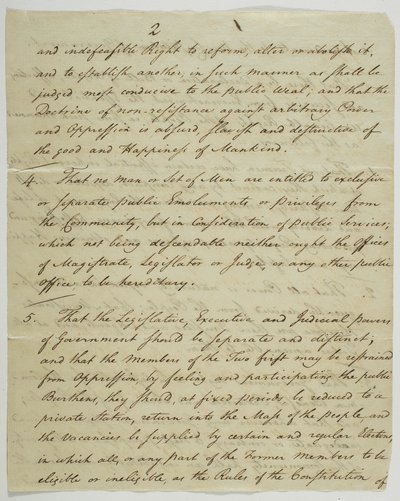 2
and indefeasible Right to reform, alter or abolish it,
and to establish another, in such manner as shall be
judged most conducive to the public Weal; and that the
Doctrine of non-resistance against arbitrary Power
and Oppression is absurd, slavish and destructive of
the good and Happiness of Mankind.
4. That no man or Set of Men are entitled to exclusive
or separate public Emoluments or Privileges from
the Community, but in Consideration of public Services;
which not being descendable neither ought the Offices
of Magistrate, Legislator or Judge, or any other public
Office, to be hereditary.
5. That the Legislative, Executive and Judicial powers
of Government should be separate and distinct;
and that the Members of the Two first may be restrained
from Oppression, by feeling and participating the public
Burthens, they should, at fixed periods, be reduced to a
private Station, return into the Mass of the people and
the Vacancies be supplied by certain and regular Elections,
in which all, or any part of the Former Members to be
eligible or ineligible, as the Rules of the Constitution of